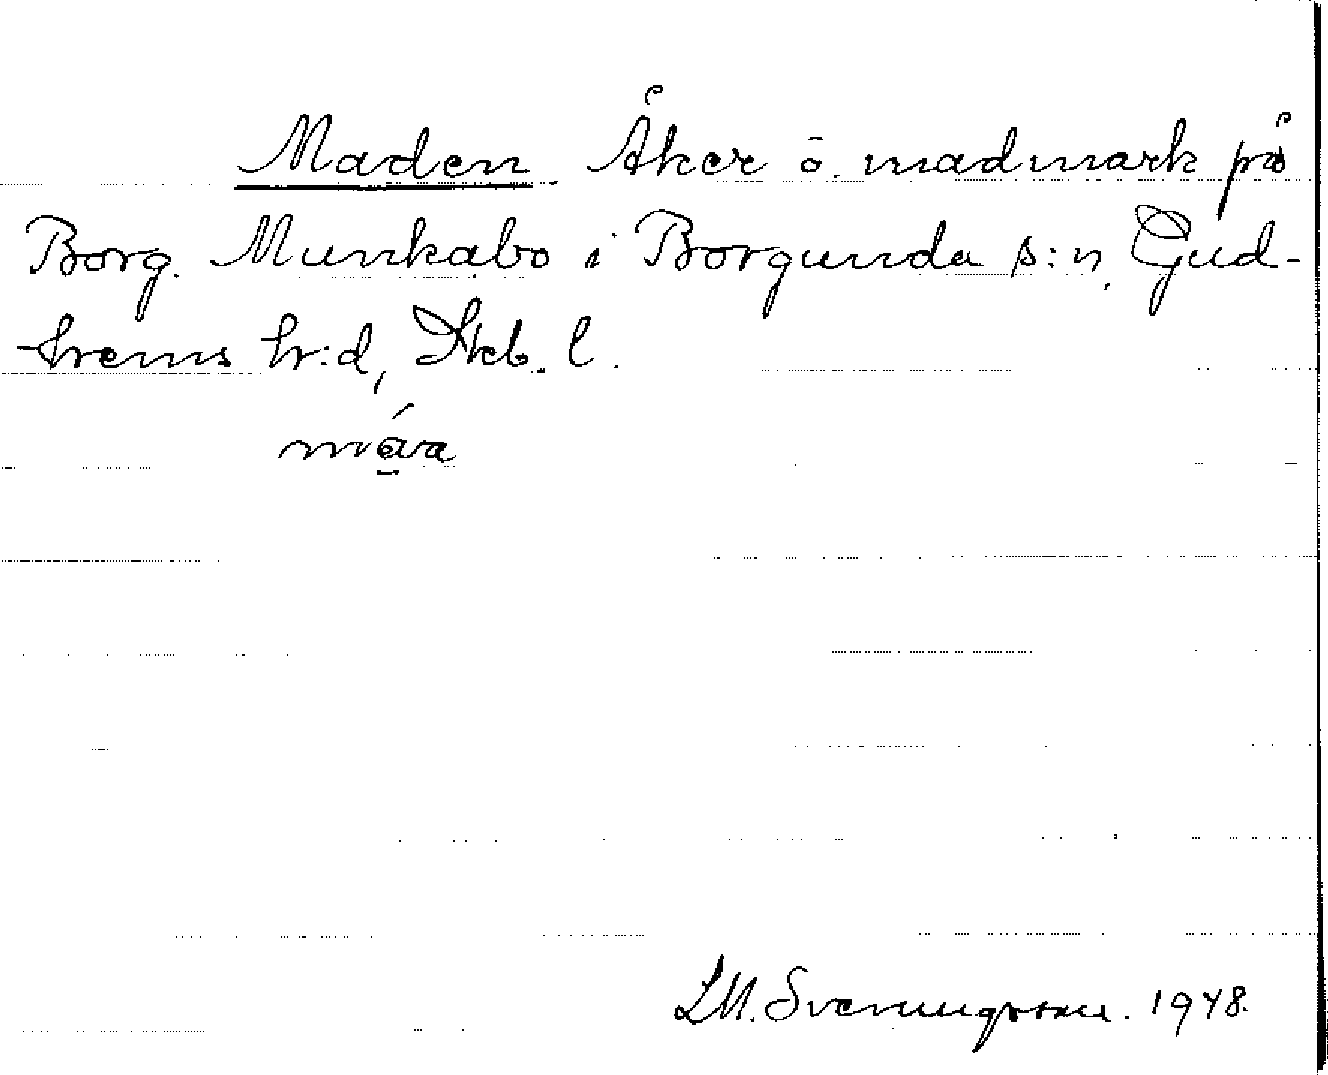 Maden Åker ō madmark på
Borg. Munkabo i Borgunda s:n, Gud-
hrems hr:d, Skb. l.
måva
L.M. Svenungsson. 1948.